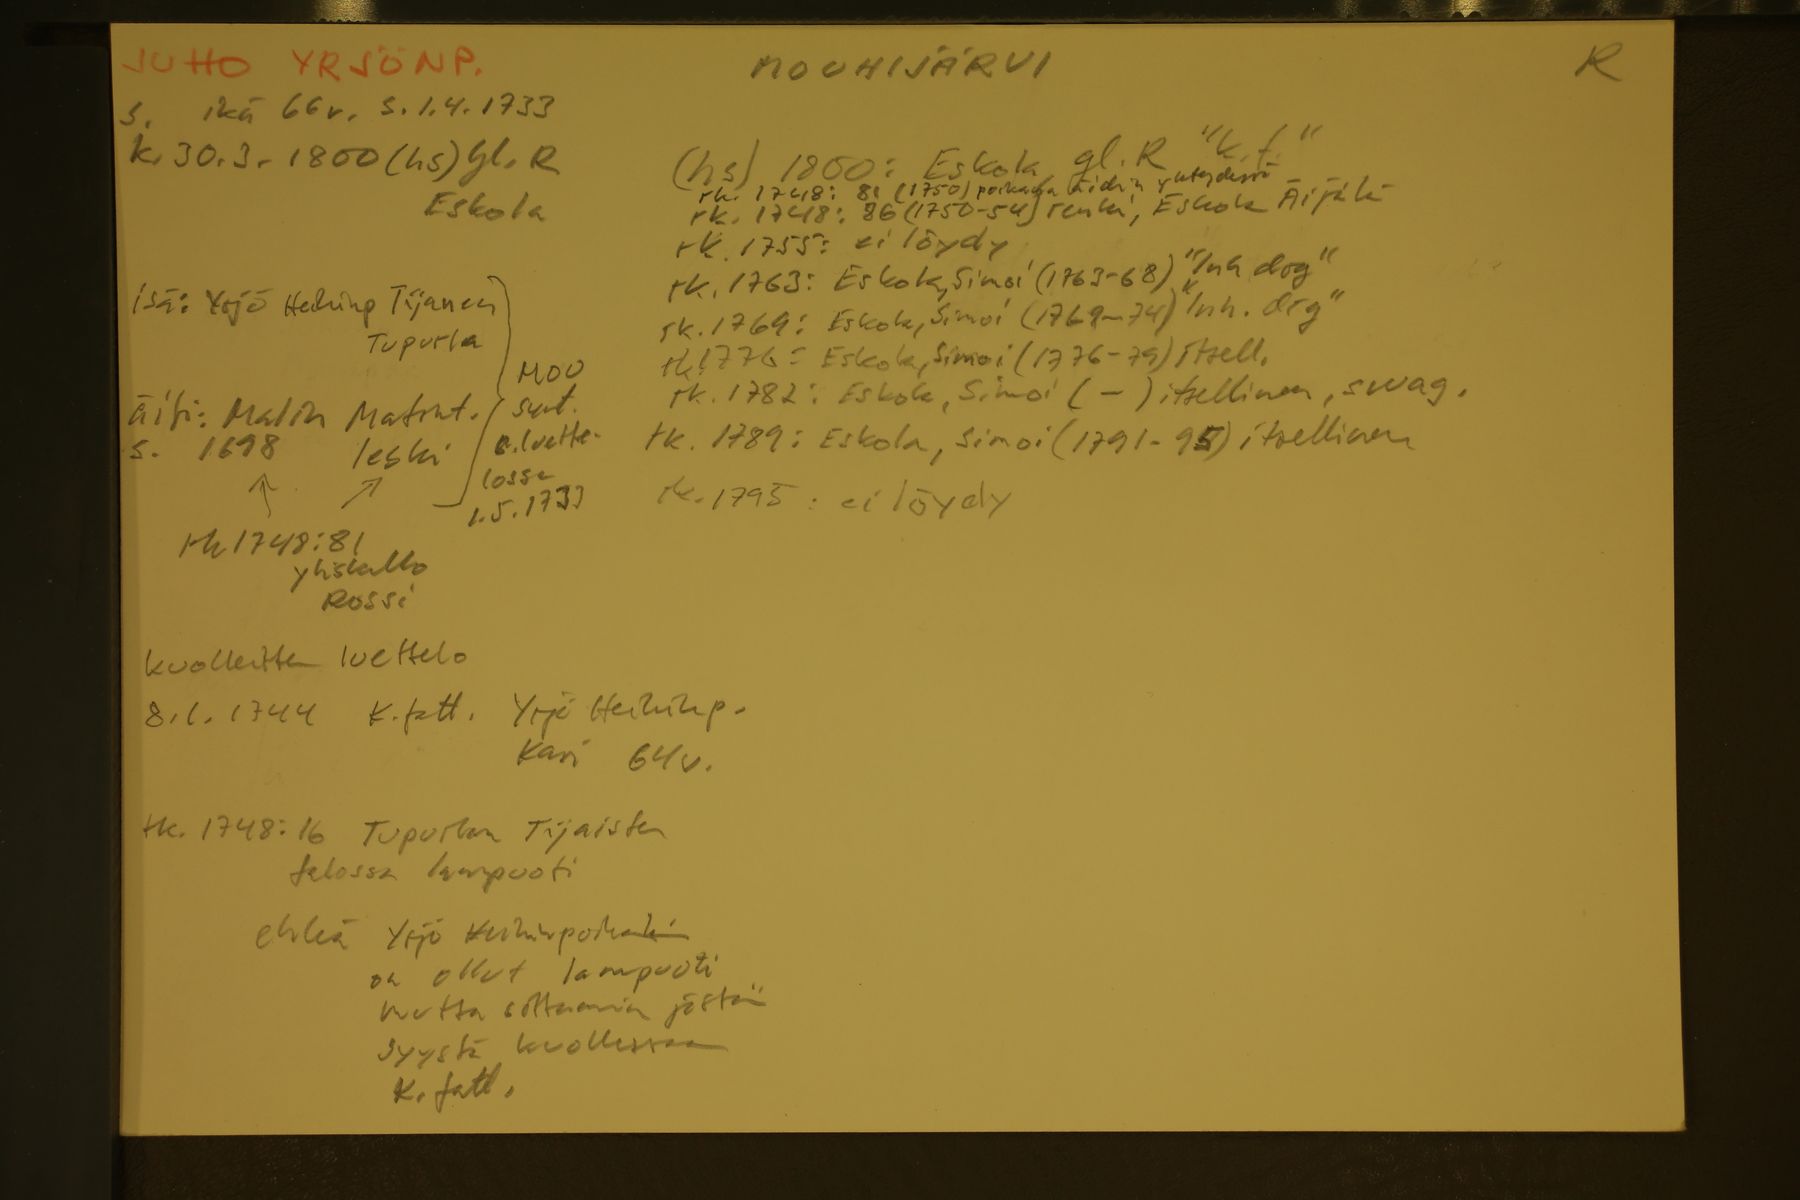 JUHO YRJÖNP.
MOUHIJÄRVI
R
s. ikä 66v. s. 1.4.1733
k. 30.3.1800 (hs) gl. R
Eskola
(hs) 1800: Eskola, gl. R "k.f."
rk. 1748: 81 (1750) poikana äidin yhteydessä
rk. 1748: 86 (1750-54) renki, Eskola Äijälä
rk. 1755: ei löydy
rk. 1763: Eskola, Simoi (1763-68) "Inh drg"
rk. 1769: Eskola, Simoi (1769-74) "Inh. drg"
rk 1776: Eskola, Simoi (1776-79) itsell.
rk. 1782: Eskola, Simoi ( - ) itsellinen, svag.
rk. 1789: Eskola, Simoi (1791-95) itsellinen
rk. 1795: ei löydy
isä: Yrjö Heikinp Tijanen
Tupurla
äiti: Malin Matint.
s. 1698 leski
MOU
synt.
luette-
lossa
1.5.1733
rk 1748:81
yliskallo
Rossi
kuolleitten luettelo
8.1.1744 K.fatt. Yrjö Heikinp.
Kari 64v.
rk. 1748:16 Tupurlan Tijaisten
talossa lampuoti
ehkä Yrjö Heikinpoika
on ollut lampuoti
mutta jostain jostä
syystä kuollessaan
K. fatt.